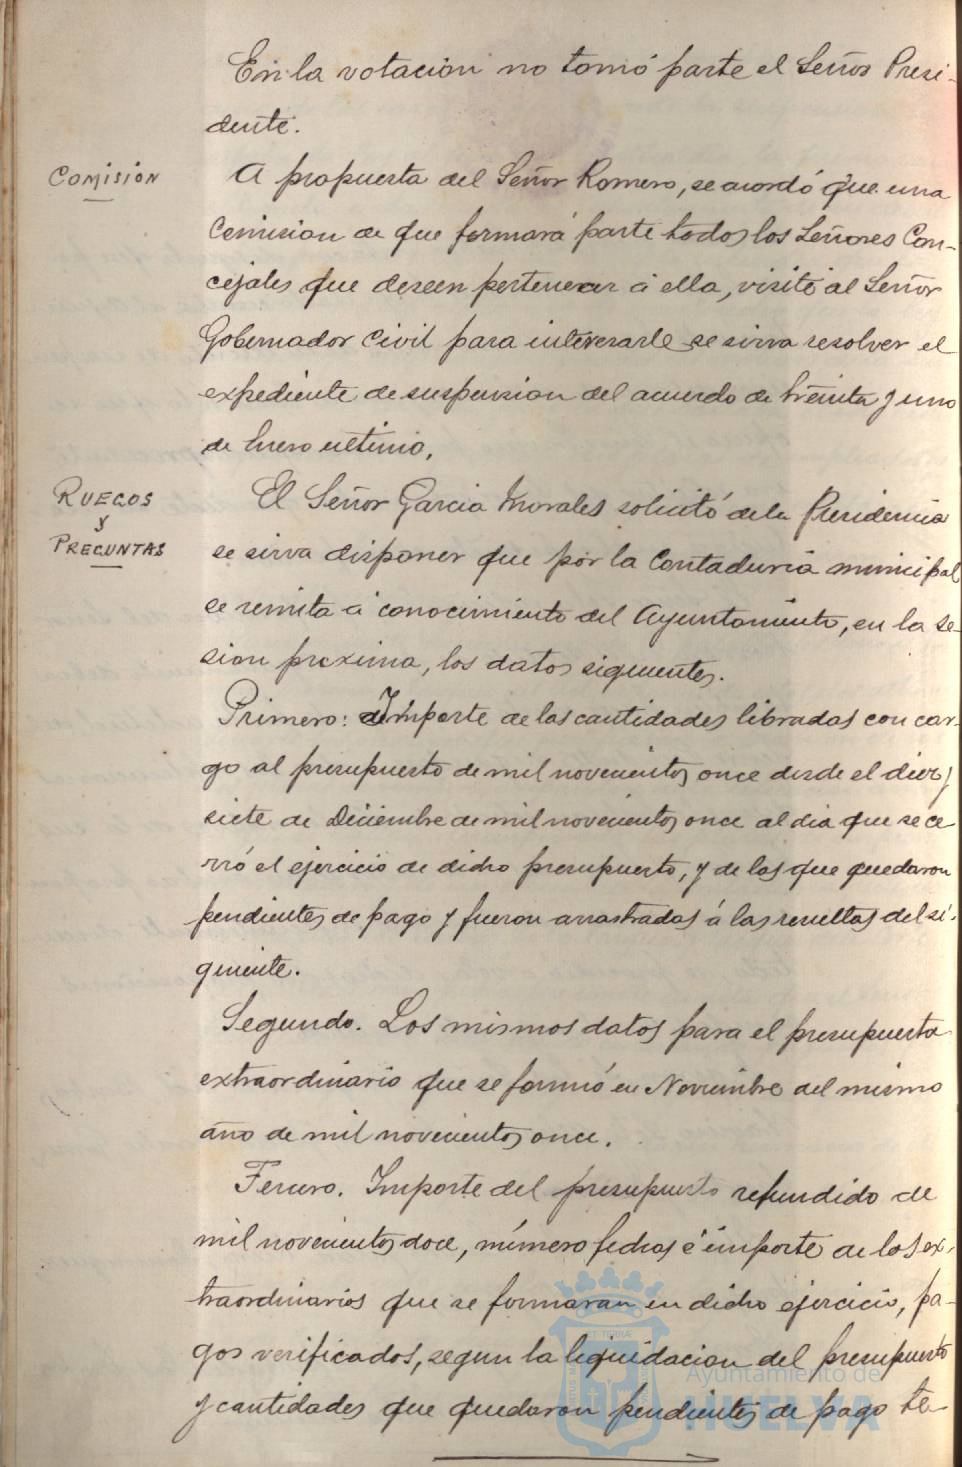 En la votación no tomó parte el Señor Presi-
dente.
COMISION
A propuesta del Señor Romero, se acordó que una
Comision de que formará parte todos los Señores Con-
cejales que deseen pertenecer á ella, visite al Señor
Gobernador Civil para interesarle se sirva resolver el
expediente de suspension del acuerdo de treinta y uno
de Enero ultimo.
RUEGOS
Y
PREGUNTAS
El Señor Garcia Morales solicitó de la Presidencia
se sirva disponer que por la Contaduria municipal
se remita á conocimiento del Ayuntamiento, en la se-
sion proxima, los datos siguientes.
Primero: Importe de las cantidades libradas con car-
go al presupuesto de mil novecientos once desde el diez y
siete de Diciembre de mil novecientos once al dia que se ce
rró el ejercicio de dicho presupuesto, y de las que quedaron
pendientes de pago y fueron arrastradas á las resultas del si-
guiente.
Segundo. Los mismos datos para el presupuesto
extraordinario que se formó en Noviembre del mismo
año de mil novecientos once.
Tercero. Importe del presupuesto refundido de
mil novecientos doce, número fechas é importe de los ex-
traordinarios que se formaran en dicho ejercicio, pa-
gos verificados, segun la liquidacion del presupuesto
y cantidades que quedaron pendientes de pago te-
Ayuntamiento de
HUELVA